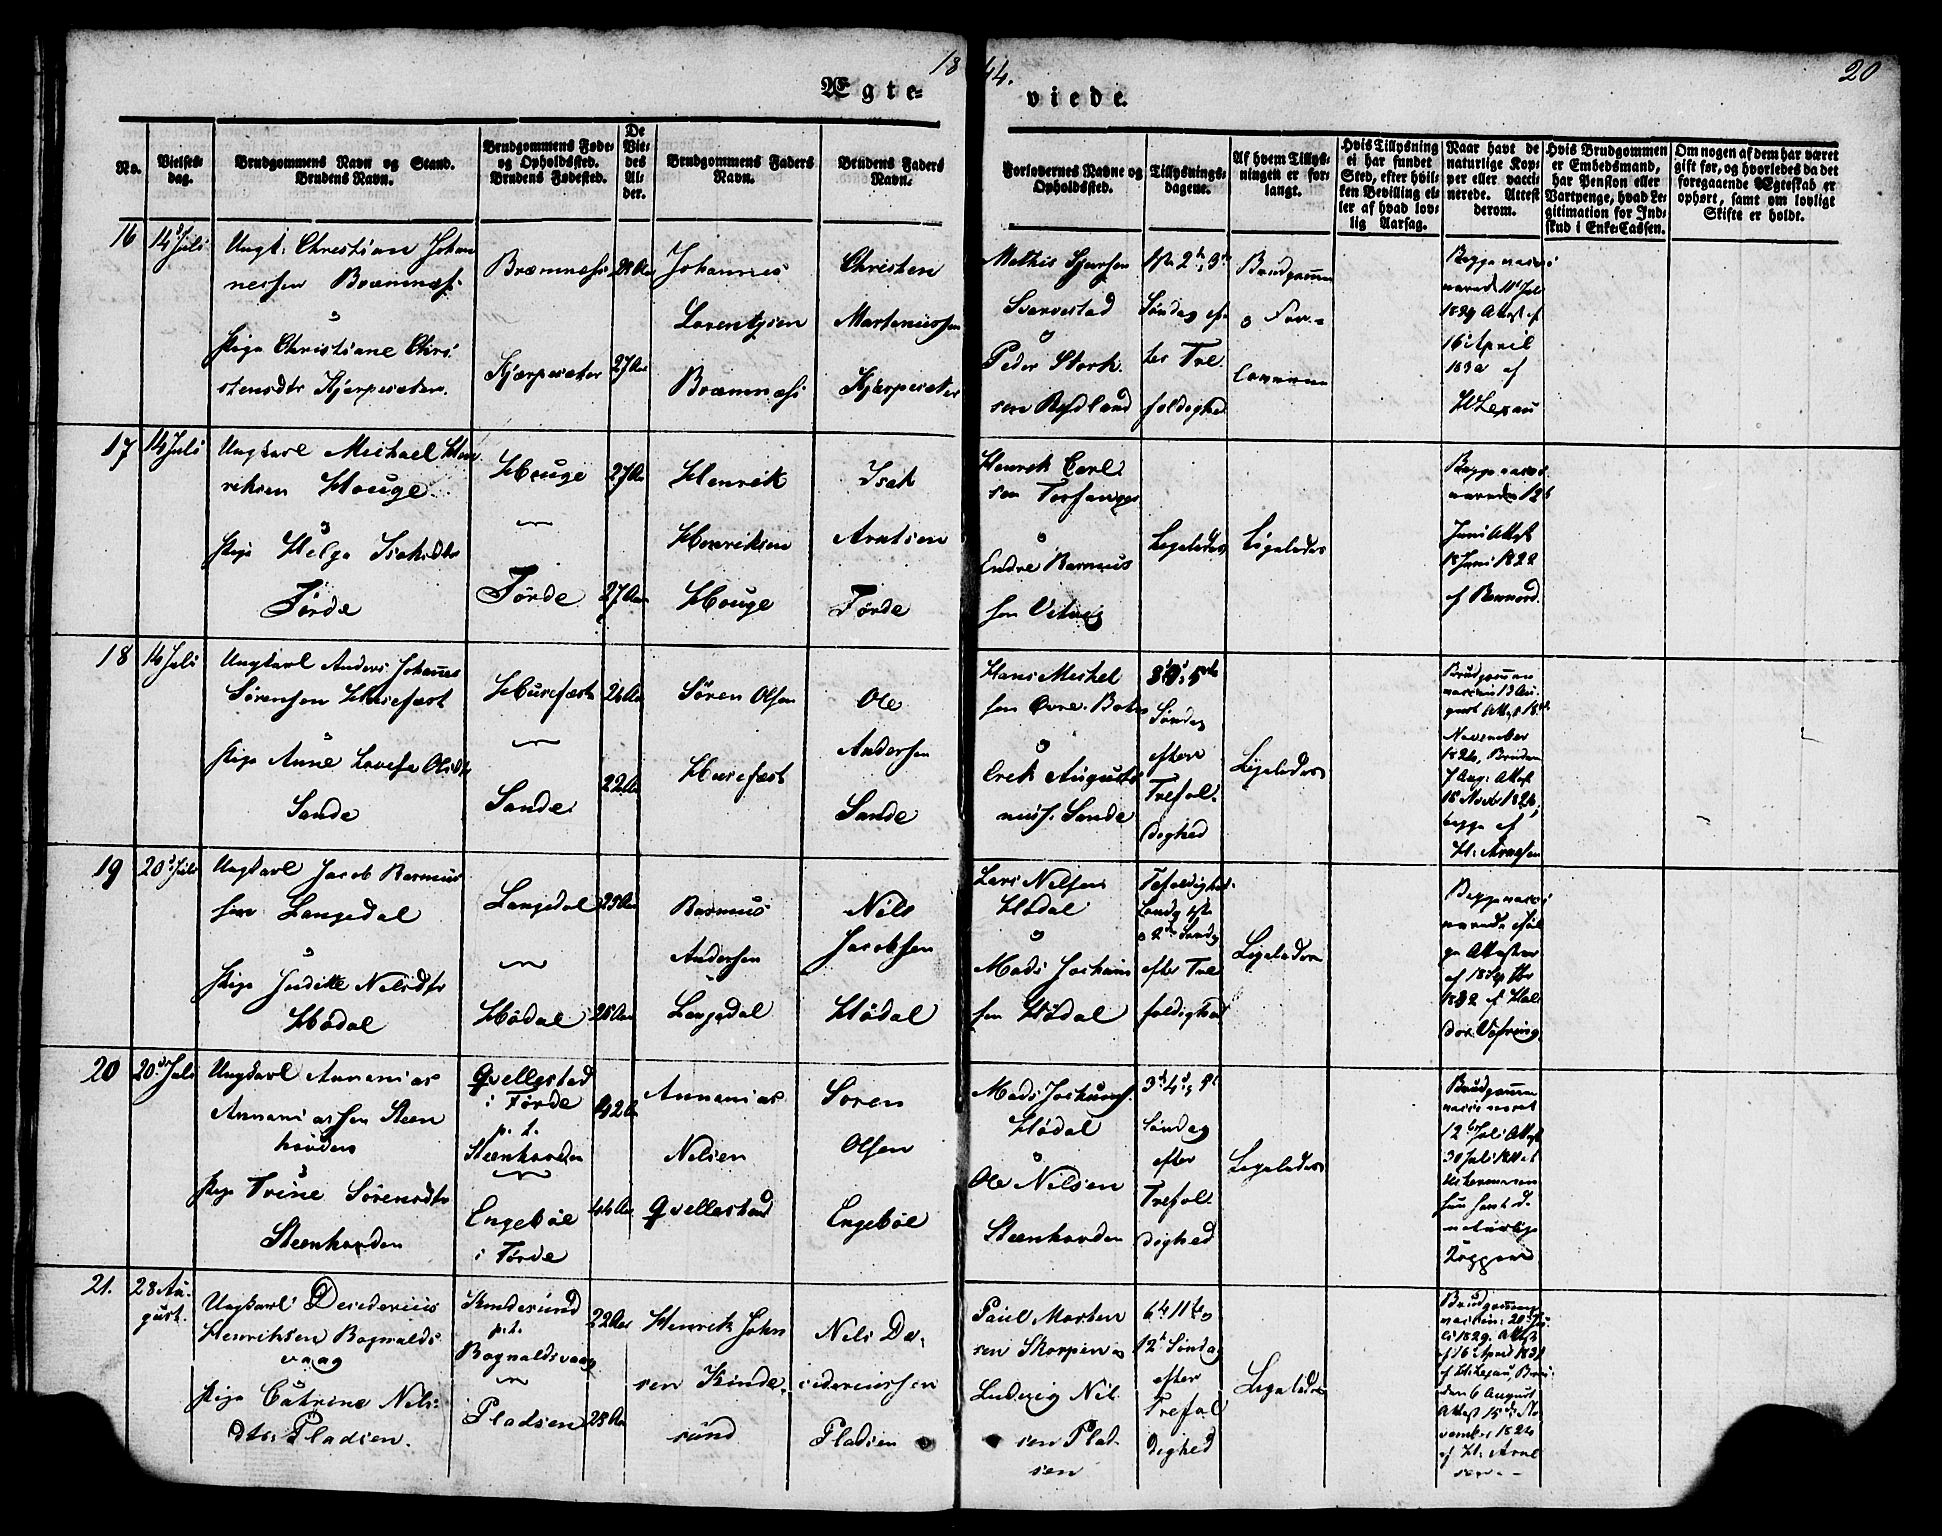 1844.
20
Ægteviede.
No.
Vielses-
dag.
Brudgommens Navn og Stand.
Brudens Navn.
Brudgommens Føde-
og Opholdssted.
Brudens Fødested.
De
Vie-
des
Al-
der.
Brudgommens Faders
Navn.
Brudens Faders
Navn.
Forlovernes Navne og
Opholdssted.
Tillysnings-
dagene.
Af hvem Tillys-
ningen er for-
langt.
Hvis Tillysning
ei har fundet
Sted, efter hvil-
ken Bevilling el-
ler af hvad lov-
lig Aarsag.
Naar havt de
naturlige Kop-
per eller vacci-
nerede. Attest
derom.
Hvis Brudgommen
er Embedsmand,
har Pension eller
Vartpenge, hvad Le-
gitimation for Ind-
skud i Enke-Cassen.
Om nogen af dem har været
gift før, og hvorledes da det
foregaaende Ægteskab er
ophørt, samt om lovligt
Skifte er holdt.
16
14 Juli
Ungk. Christian Johan
nessen Bremnæs.
&
Pige Christiane Chri
stensdtr Kjerpesæter.
Bremnæs
Kjærpesæter
27 Aar
Johannes
Lorentzsen
Bremnæs
Christen
Martenussen
Kjerpesæter
Mathis Sjursen
Svarvestad
&
Peder
sen
2de 3die
Søndag ef
ter Tre
foldighed
Brudgommen
Begge vacci
nerede 11 Juli
1829 Attest af
16 April
af
17
14 Juli
Ungkarl Michael Hen
riksen Houge
&
Pige Helge Isaksdtr
Førde
Houge
Førde
27 Aar
27 Aar
Henrik
Henriksen
Houge
Isak
Arntsen
Førde
Henrik Carl
sen
&
Endre Rasmus
sen
Ligeledes
Ligeledes
Begge vacci
nerede 12
Juni Attest
18 Juni 1822
af
18
14 Juli
Ungkarl Anders Johannes
Sørensen Husefest
&
Pige Anne Lovise Olsdtr
Sande
Husefæst
Sande
26 Aar
22 Aar
Søren Olsen
Husefæst
Ole
Andersen
Sande
Hans Michel
sen
&
Erek Augusti
nus. Sande
Søndag
efter
Trefol
dighed
Ligeledes
Brudgommen
gust Attest 18de
November
1824, Bruden
7 Aug: Attest
18 Novbr 1824,
begge af
H: Arnesen
19
20 Juli
Ungkarl Jacob Rasmus
sen Langedal
&
Pige Judithe Nilsdtr
Hødal
Langedal
Hødal
25 Aar
28 Aar
Rasmus
Andersen
Langedal
Nils
Jacobsen
Hødal
Lars Nilsen
Hødal
&
Mads Jochum
sen Hødal
Trefoldigheds
Søndag
& 2den Søndag
efter Tre
foldighed
Ligeledes
Begge vacci
nerede iføl
ge Attester
af 18 Septbr
af Hal
dor
20
20 Juli
Ungkarl Annanias
Annaniassen Steen
hovden
Pige Trine Sørensdtr
Steenhovden
Qvellestad
i Førde
p. t.
Steenhovden
Engebøe
i Førde
42 Aar
44 Aar
Annanias
Nilsen
Qvellestad
Søren
Olsen
Engebøe
Mads Jochums.
Hødal
&
Ole Nilsen
Steenhovden
3die 4de & 5te
Søndag
efter
Trefol
dighed
Ligeledes
Brudgommen
vaccineret
12 Juli Attest
30 Juli
hun havt de
naturlige
Kopper
21.
28 Au-
gust.
Ungkarl Desiderius
Henriksen Rognalds
vaag
Pige Catrine Nils
dtr Pladsen.
Kindesund
p. t.
Rognaldsvaag
Pladsen
22 Aar
28 Aar
Henrik John
sen Kinde
sund
Nils De-
sideriussen
Pladsen
Paul Morten
sen Skorpen &
Ludvig Nil
sen Plad
sen
6te 11te &
12te Søndag
efter
Trefol
dighed
Ligeledes
Brudgommen
li 1829. Attest
af 16 April 1831
den 6 August
Attest 15de No
vember 1824
af H. Arne
sen